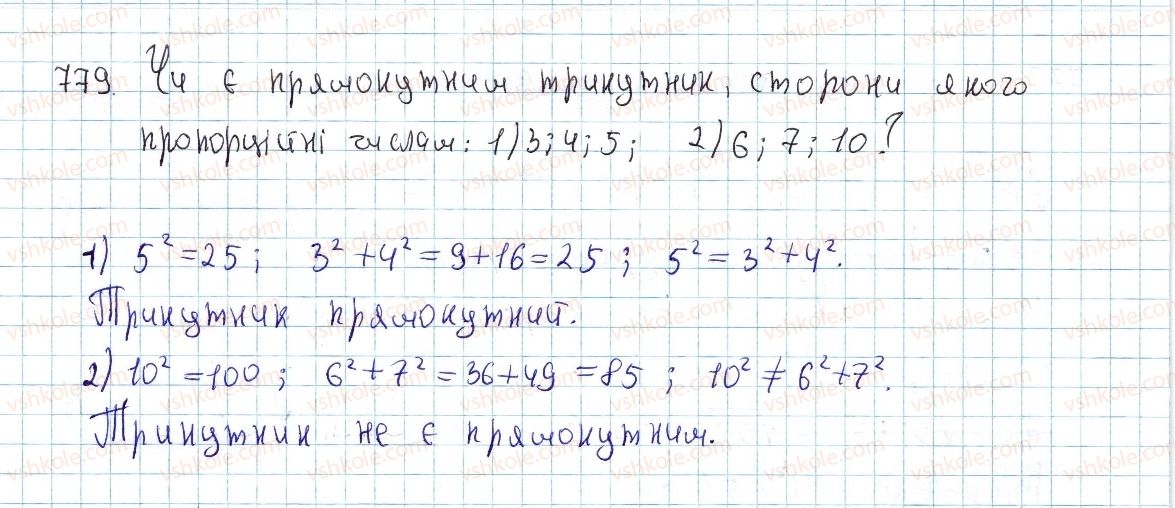 779. Чи є прямокутним трикутник, сторони якого
пропорційні числам: 1) 3; 4; 5; 2) 6; 7; 10?
1) 5² = 25; 3² + 4² = 9 + 16 = 25; 5² = 3² + 4².
Трикутник прямокутний.
2) 10² = 100; 6² + 7² = 36 + 49 = 85; 10² ≠ 6² + 7².
Трикутник не є прямокутним.